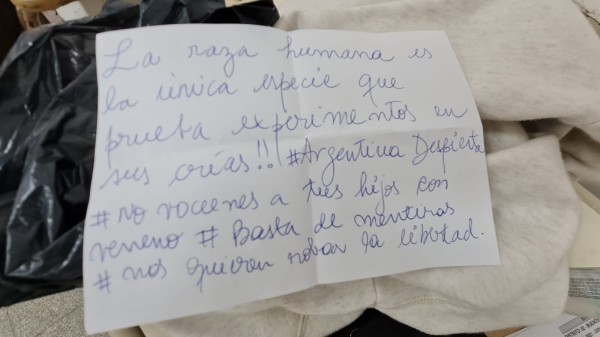 La raza humana es
la única especie que
prueba experimentos en
sus crías!! #Argentina Despierta
#no vacunes a tus hijos con
veneno # Basta de mentiras
# nos quieren robar la libertad.